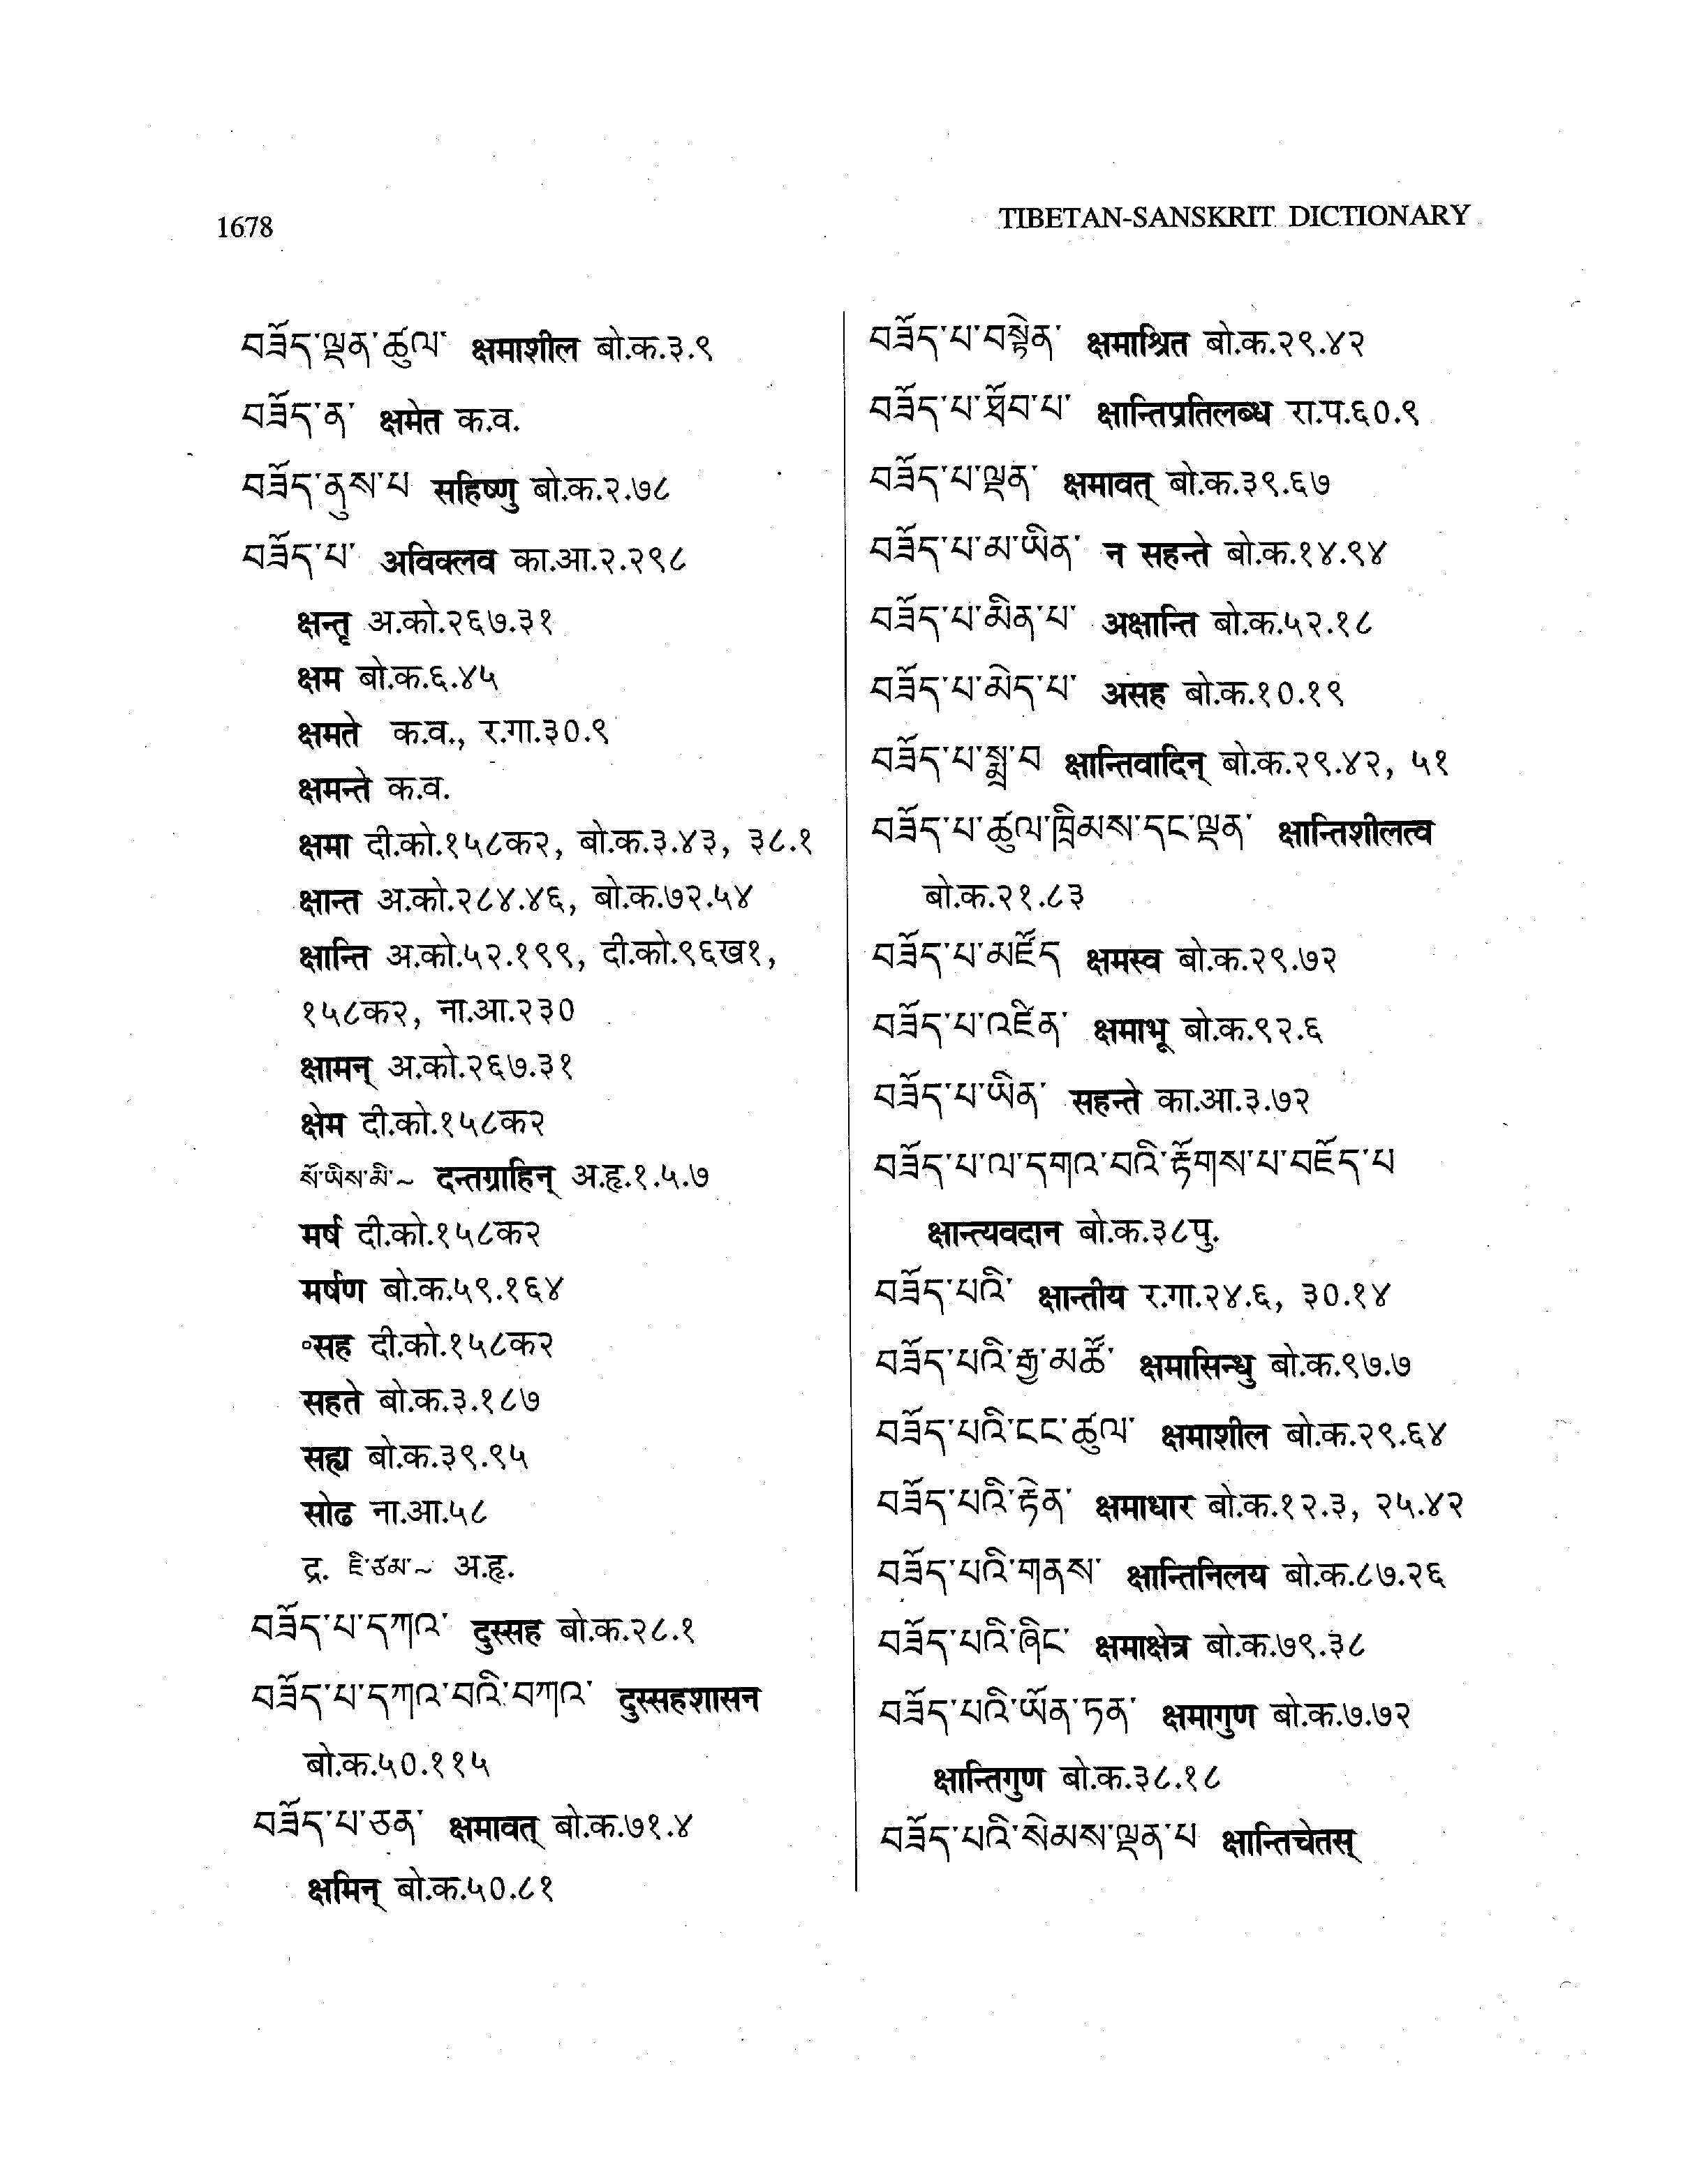 1678
TIBETAN-SANSKRIT DICTIONARY
བཟོད་ལྡན་ཚུལ་ क्षमाशील बो.क.३.९
བཟོད་ན་ क्षमेत क.व.
བཟོད་ནུས་པ सहिष्णु बो.क.२.७८
བཟོད་པ་ अविक्लव का.आ.२.२९८
क्षन्तृ अ.को.२६७.३१
क्षम बो.क.६.४५
क्षमते क.व., र.गा.३०.९
क्षमन्ते क.व.
क्षमा दी.को.१५८क२, बो.क.३.४३, ३८.१
क्षान्त अ.को.२८४.४६, बो.क.७२.५४
क्षान्ति अ.को.५२.१९९, दी.को.९६ख१,
१५८क२, ना.आ.२३०
क्षामन् अ.को.२६७.३१
क्षेम दी.को.१५८क२
སོ་ཡིས་མི་~ दन्तग्राहिन् अ.हृ.१.५.७
मर्ष दी.को.१५८क२
मर्षण बो.क.५९.१६४
॰सह दी.को.१५८क२
सहते बो.क.३.१८७
सह्य बो.क.३९.९५
सोढ ना.आ.५८
द्र. ཇི་ཙམ་~ अ.हृ.
བཟོད་པ་དཀའ་ दुस्सह बो.क.२८.१
བཟོད་པ་དཀའ་བའི་བཀའ་ दुस्सहशासन
बो.क.५०.११५
བཟོད་པ་ཅན་ क्षमावत् बो.क.७१.४
क्षमिन् बो.क.५०.८१
བཟོད་པ་བསྟེན་ क्षमाश्रित बो.क.२९.४२
བཟོད་པ་ཐོབ་པ་ क्षान्तिप्रतिलब्ध रा.प.६०.९
བཟོད་པ་ལྡན་ क्षमावत् बो.क.३९.६७
བཟོད་པ་མ་ཡིན་ न सहन्ते बो.क.१४.९४
བཟོད་པ་མིན་པ་ अक्षान्ति बो.क.५२.१८
བཟོད་པ་མེད་པ་ असह बो.क.१०.१९
བཟོད་པ་སྨྲ་བ क्षान्तिवादिन् बो.क.२९.४२, ५१
བཟོད་པ་ཚུལ་ཁྲིམས་དང་ལྡན་ क्षान्तिशीलत्व
बो.क.२१.८३
བཟོད་པ་མཛོད क्षमस्व बो.क.२९.७२
བཟོད་པ་འཛིན་ क्षमाभू बो.क.९२.६
བཟོད་པ་ཡིན་ सहन्ते का.आ.३.७२
བཟོད་པ་ལ་དགའ་བའི་རྟོགས་པ་བརྗོད་པ
क्षान्त्यवदान बो.क.३८पु.
བཟོད་པའི་ क्षान्तीय र.गा.२४.६, ३०.१४
བཟོད་པའི་རྒྱ་མཚོ་ क्षमासिन्धु बो.क.९७.७
བཟོད་པའི་ངང་ཚུལ་ क्षमाशील बो.क.२९.६४
བཟོད་པའི་རྟེན་ क्षमाधार बो.क.१२.३, २५.४२
བཟོད་པའི་གནས་ क्षान्तिनिलय बो.क.८७.२६
བཟོད་པའི་ཞིང་ क्षमाक्षेत्र बो.क.७९.३८
བཟོད་པའི་ཡོན་ཏན་ क्षमागुण बो.क.७.७२
क्षान्तिगुण बो.क.३८.१८
བཟོད་པའི་སེམས་ལྡན་པ क्षान्तिचेतस्